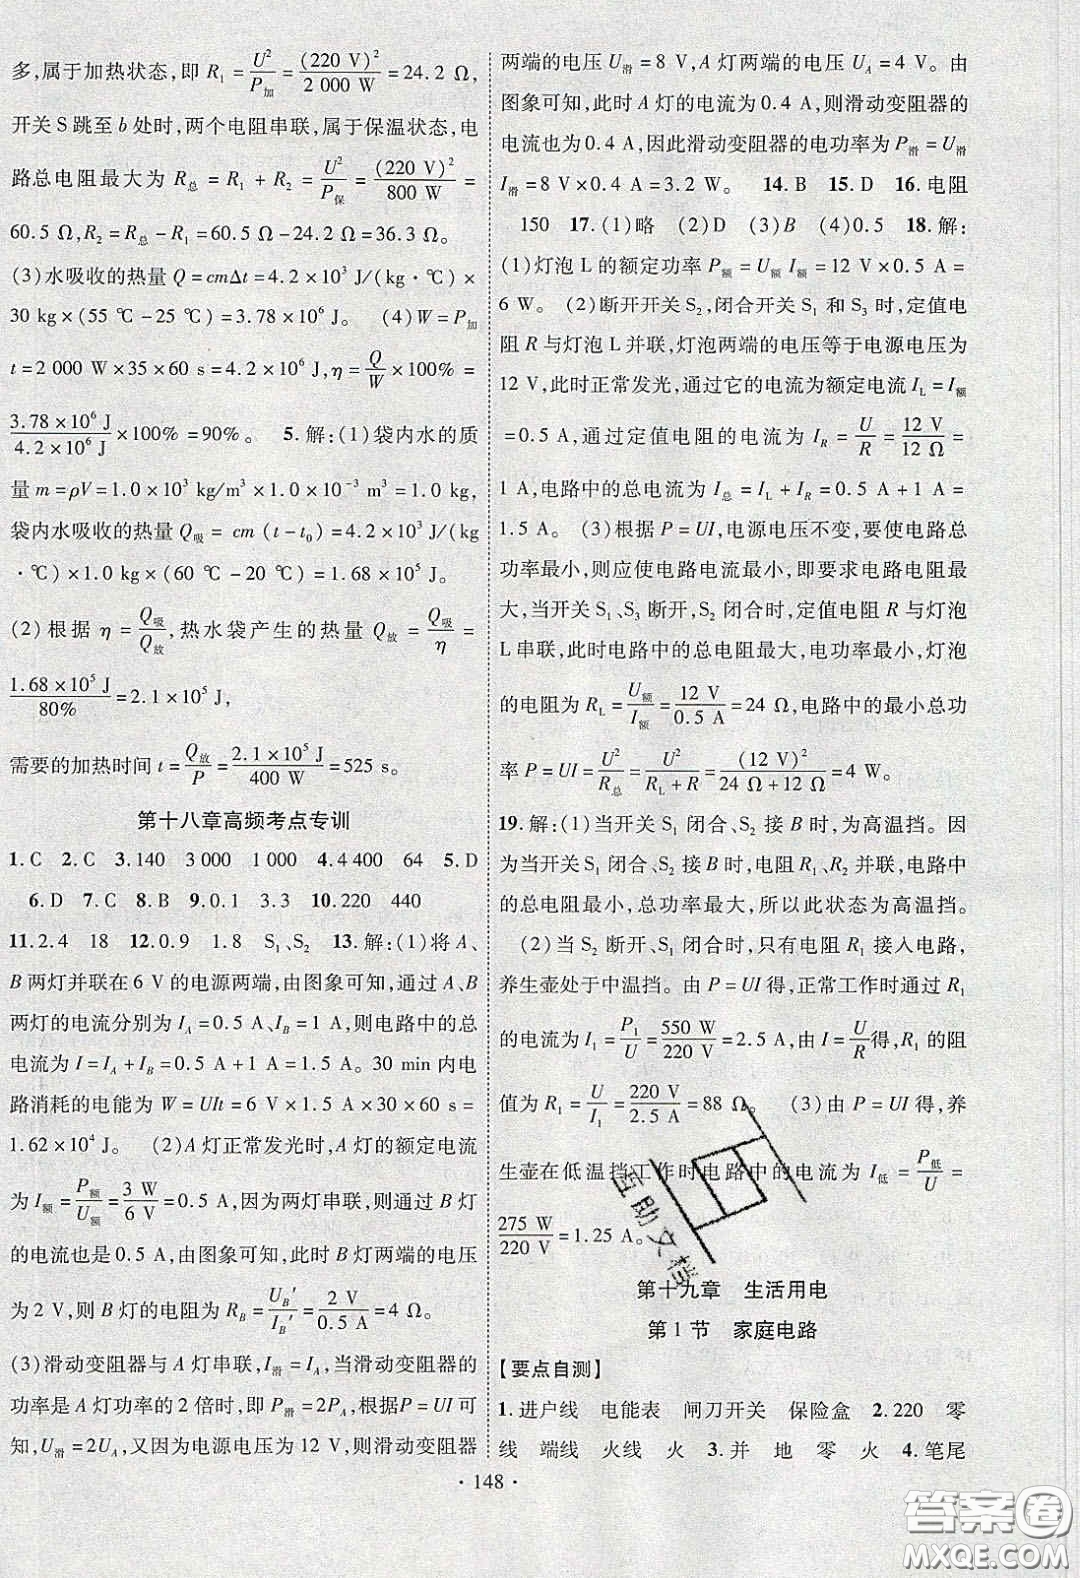 多,属于加热状态,即 R₁ = U²/P加 = (220 V)²/2 000 W = 24.2 Ω,
开关 S 跳至 b 处时,两个电阻串联,属于保温状态,电
路总电阻最大为 R总 = R₁ + R₂ = U²/P保 = (220 V)²/800 W =
60.5 Ω,R₂ = R总 − R₁ = 60.5 Ω − 24.2 Ω = 36.3 Ω。
(3)水吸收的热量 Q = cmΔt = 4.2 × 10³ J/(kg · ℃) ×
30 kg × (55 ℃ − 25 ℃) = 3.78 × 10⁶ J。 (4)W = P加
t = 2 000 W × 35 × 60 s = 4.2 × 10⁶ J,η = Q/W × 100% =
3.78 × 10⁶ J/4.2 × 10⁶ J × 100% = 90%。 5.解:(1)袋内水的质
量 m = ρV = 1.0 × 10³ kg/m³ × 1.0 × 10⁻³ m³ = 1.0 kg,
袋内水吸收的热量 Q吸 = cm (t − t₀) = 4.2 × 10³ J/(kg
· ℃) × 1.0 kg × (60 ℃ − 20 ℃) = 1.68 × 10⁵ J。
(2)根据 η = Q吸/Q放,热水袋产生的热量 Q放 = Q吸/η =
1.68 × 10⁵ J/80% = 2.1 × 10⁵ J,
需要的加热时间 t = Q放/P = 2.1 × 10⁵ J/400 W = 525 s。
第十八章高频考点专训
1.C 2.C 3.140 3 000 1 000 4.4 400 64 5.D
6.D 7.C 8.B 9.0.1 3.3 10.220 440
11.2.4 18 12.0.9 1.8 S₁、S₂ 13.解:(1)将 A、
B 两灯并联在 6 V 的电源两端,由图象可知,通过 A、B
两灯的电流分别为 I_A = 0.5 A、I_B = 1 A,则电路中的总
电流为 I = I_A + I_B = 0.5 A + 1 A = 1.5 A。30 min 内电
路消耗的电能为 W = UIt = 6 V × 1.5 A × 30 × 60 s =
1.62 × 10⁴ J。 (2)A 灯正常发光时,A 灯的额定电流
为 I额 = P额/U额 = 3 W/6 V = 0.5 A,因为两灯串联,所以 B 灯
的电流也是 0.5 A,由图象可知,此时 B 灯两端的电压
为 2 V,则 B 灯的电阻为 R_B = U_B′/I_B′ = 2 V/0.5 A = 4 Ω。
(3)滑动变阻器与 A 灯串联,I滑 = I_A,当滑动变阻器的
功率是 A 灯功率的 2 倍时,即 P滑 = 2P_A,根据 P = UI 可
知,U滑 = 2U_A,又因为电源电压为 12 V,则滑动变阻器
两端的电压 U滑 = 8 V,A 灯两端的电压 U_A = 4 V。由
图象可知,此时 A 灯的电流为 0.4 A,则滑动变阻器的
电流也为 0.4 A,因此滑动变阻器的电功率为 P滑 = U滑
I滑 = 8 V × 0.4 A = 3.2 W。 14.B 15.D 16.电阻
150 17.(1)略 (2)D (3)B (4)0.5 18.解:
(1)灯泡 L 的额定功率 P额 = U额 I额 = 12 V × 0.5 A =
6 W。 (2)断开开关 S₂,闭合开关 S₁ 和 S₃ 时,定值电
阻 R 与灯泡 L 并联,灯泡两端的电压等于电源电压为
12 V,此时正常发光,通过它的电流为额定电流 I_L = I额
= 0.5 A,通过定值电阻的电流为 I_R = U/R = 12 V/12 Ω =
1 A,电路中的总电流为 I总 = I_L + I_R = 0.5 A + 1 A =
1.5 A。 (3)根据 P = UI,电源电压不变,要使电路总
功率最小,则应使电路电流最小,即要求电路电阻最
大,当开关 S₁、S₃ 断开,S₂ 闭合时,定值电阻 R 与灯泡
L 串联,此时电路中的总电阻最大,电功率最小,灯泡
的电阻为 R_L = U额/I额 = 12 V/0.5 A = 24 Ω,电路中的最小总功
率 P = UI = U²/R总 = U²/(R_L + R) = (12 V)²/(24 Ω + 12 Ω) = 4 W。
19.解:(1)当开关 S₁ 闭合、S₂ 接 B 时,为高温挡。因
为当开关 S₁ 闭合、S₂ 接 B 时,电阻 R₁、R₂ 并联,电路中
的总电阻最小,总功率最大,所以此状态为高温挡。
(2)当 S₂ 断开、S₁ 闭合时,只有电阻 R₁ 接入电路,
养生壶处于中温挡。由 P = UI 得,正常工作时通过 R₁
的电流为 I₁ = P₁/U = 550 W/220 V = 2.5 A,由 I = U/R 得,R₁ 的阻
值为 R₁ = U/I₁ = 220 V/2.5 A = 88 Ω。 (3)由 P = UI 得,养
生壶在低温挡工作时电路中的电流为 I低 = P低/U =
275 W/220 V = 1.25 A。
第十九章 生活用电
第 1 节 家庭电路
【要点自测】
1.进户线 电能表 闸刀开关 保险盒 2.220 零
线 端线 火线 火 3.并 地 零 火 4.笔尾
· 148 ·
互助文档
答案圈
MXQE.COM